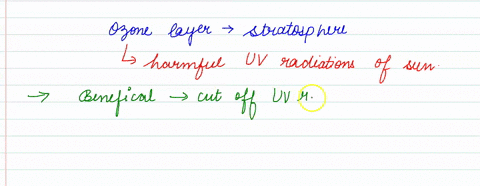 Ozone layer → stratosphere
↳ harmful UV radiations of sun.
→ Benefical → cut off UV r